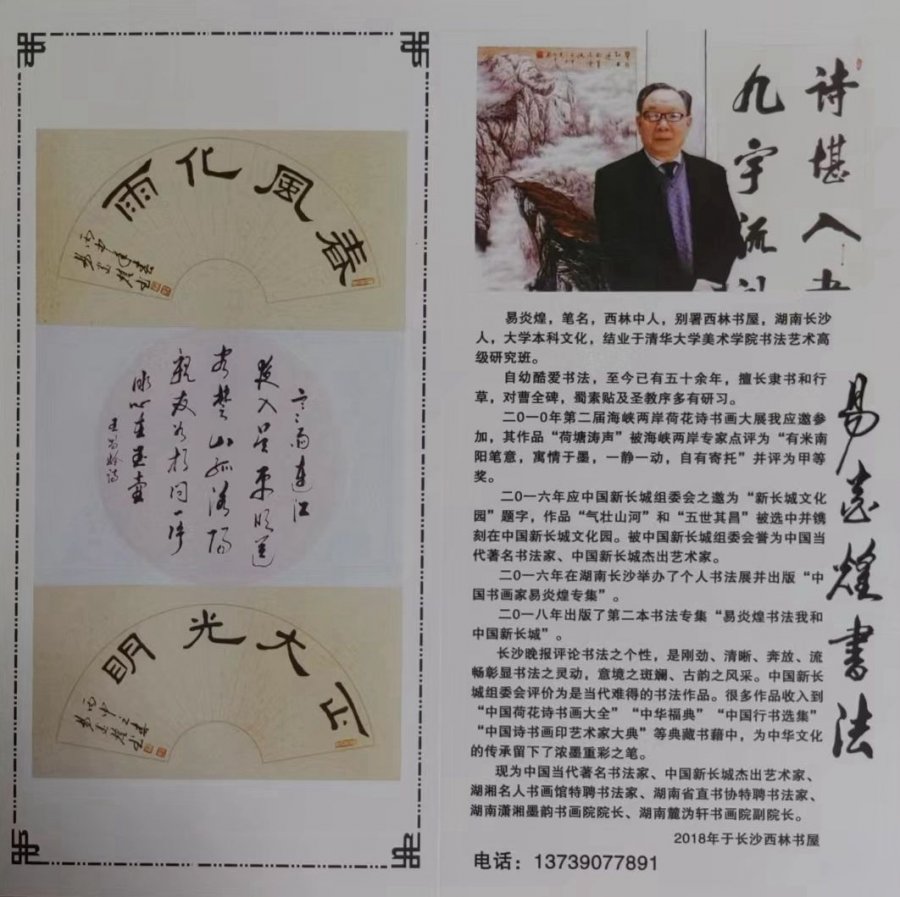 春风化雨
丙申年春
易炎煌书
寒雨连江
夜入吴平明送
客楚山孤洛阳
亲友如相问一片
冰心在玉壶
王昌龄诗
正大光明
丙申之春
易炎煌书
诗堪入
九宇流
易炎煌书法
易炎煌，笔名，西林中人，别署西林书屋，湖南长沙
人，大学本科文化，结业于清华大学美术学院书法艺术高
级研究班。
自幼酷爱书法，至今已有五十余年，擅长隶书和行
草，对曹全碑，蜀素贴及圣教序多有研习。
二0一0年第二届海峡两岸荷花诗书画大展我应邀参
加，其作品“荷塘涛声”被海峡两岸专家点评为“有米南
阳笔意，寓情于墨，一静一动，自有寄托”并评为甲等
奖。
二0一六年应中国新长城组委会之邀为“新长城文化
园”题字，作品“气壮山河”和“五世其昌”被选中并镌
刻在中国新长城文化园。被中国新长城组委会誉为中国当
代著名书法家、中国新长城杰出艺术家。
二0一六年在湖南长沙举办了个人书法展并出版“中
国书画家易炎煌专集”。
二0一八年出版了第二本书法专集“易炎煌书法我和
中国新长城”。
长沙晚报评论书法之个性，是刚劲、清晰、奔放、流
畅彰显书法之灵动，意境之斑斓、古韵之风采。中国新长
城组委会评价为是当代难得的书法作品。很多作品收入到
“中国荷花诗书画大全”“中华福典”“中国行书选集”
“中国诗书画印艺术家大典”等典藏书籍中，为中华文化
的传承留下了浓墨重彩之笔。
现为中国当代著名书法家、中国新长城杰出艺术家、
湖湘名人书画馆特聘书法家、湖南省直书协特聘书法家、
湖南潇湘墨韵书画院院长、湖南麓沩轩书画院副院长。
2018年于长沙西林书屋
电话：13739077891